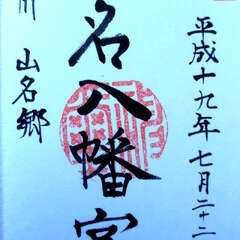 平成十九年七月二十二
名八幡宮
川 山名郷